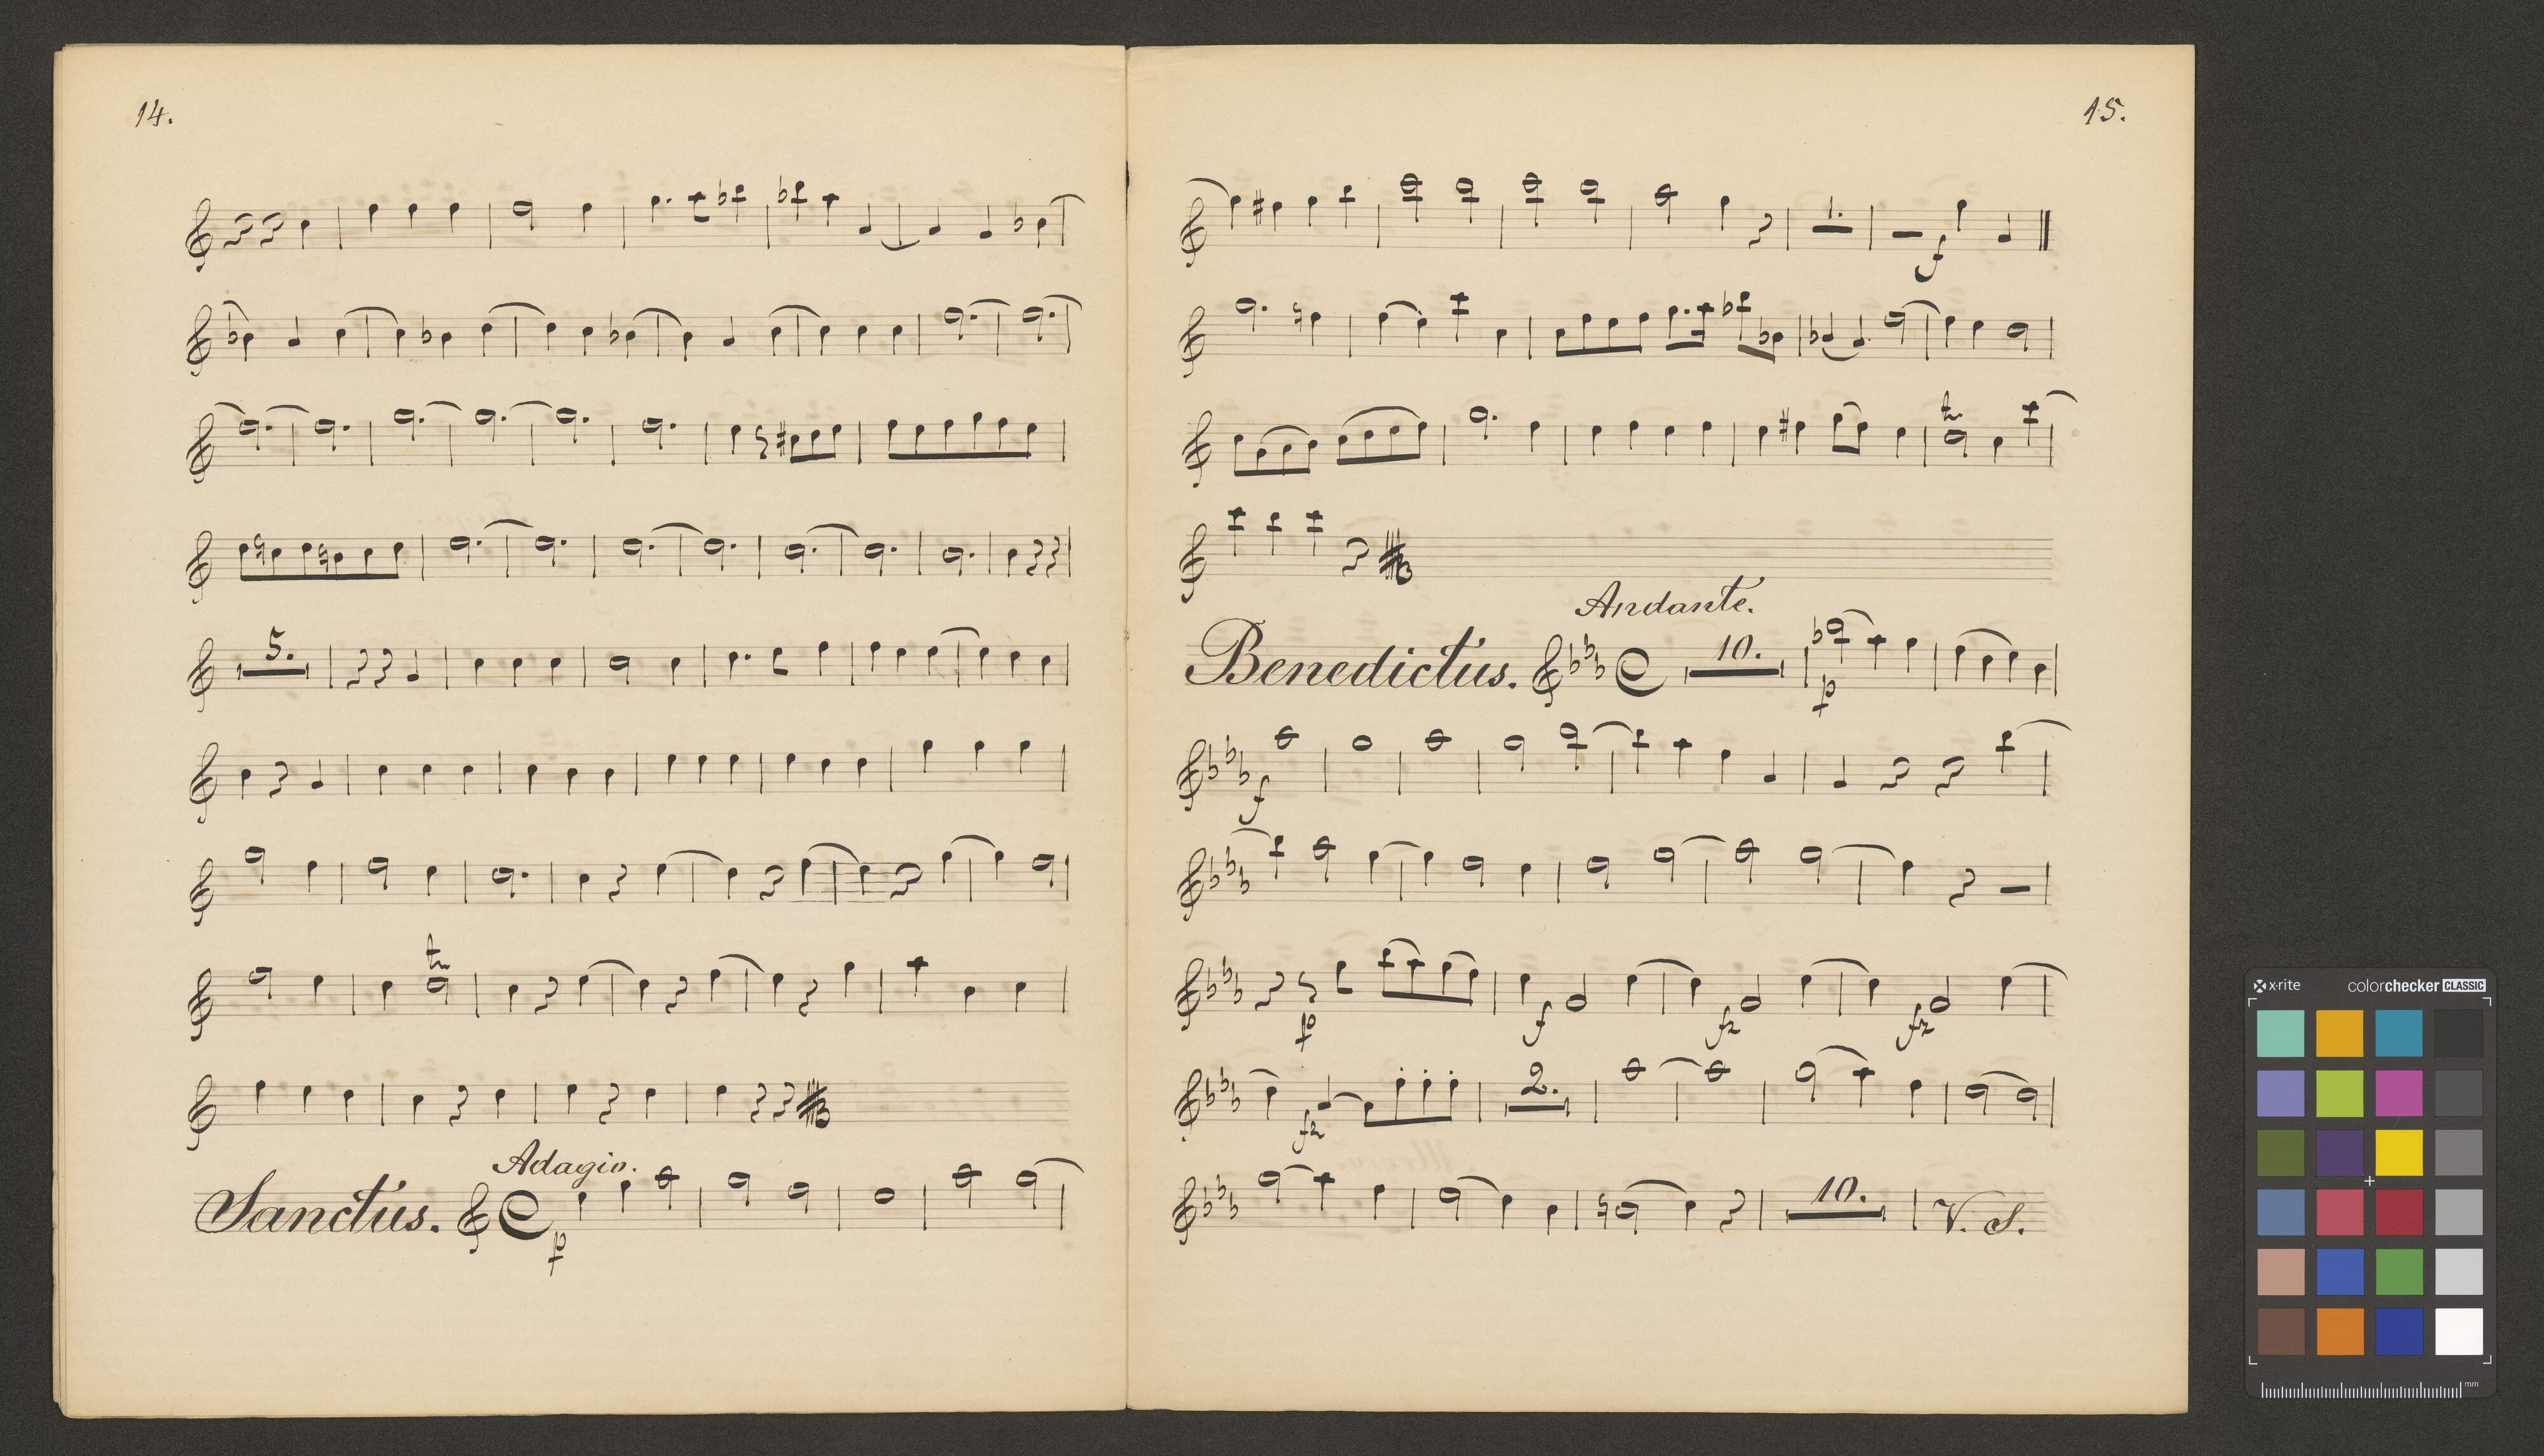 14.
5.
tr
Adagio.
Sanctus.
p
15.
1.
f
tr
Andante.
Benedictus.
10.
p
f
p
f
fz
fz
fz
2.
10.
V. S.
x-rite
colorchecker CLASSIC
mm